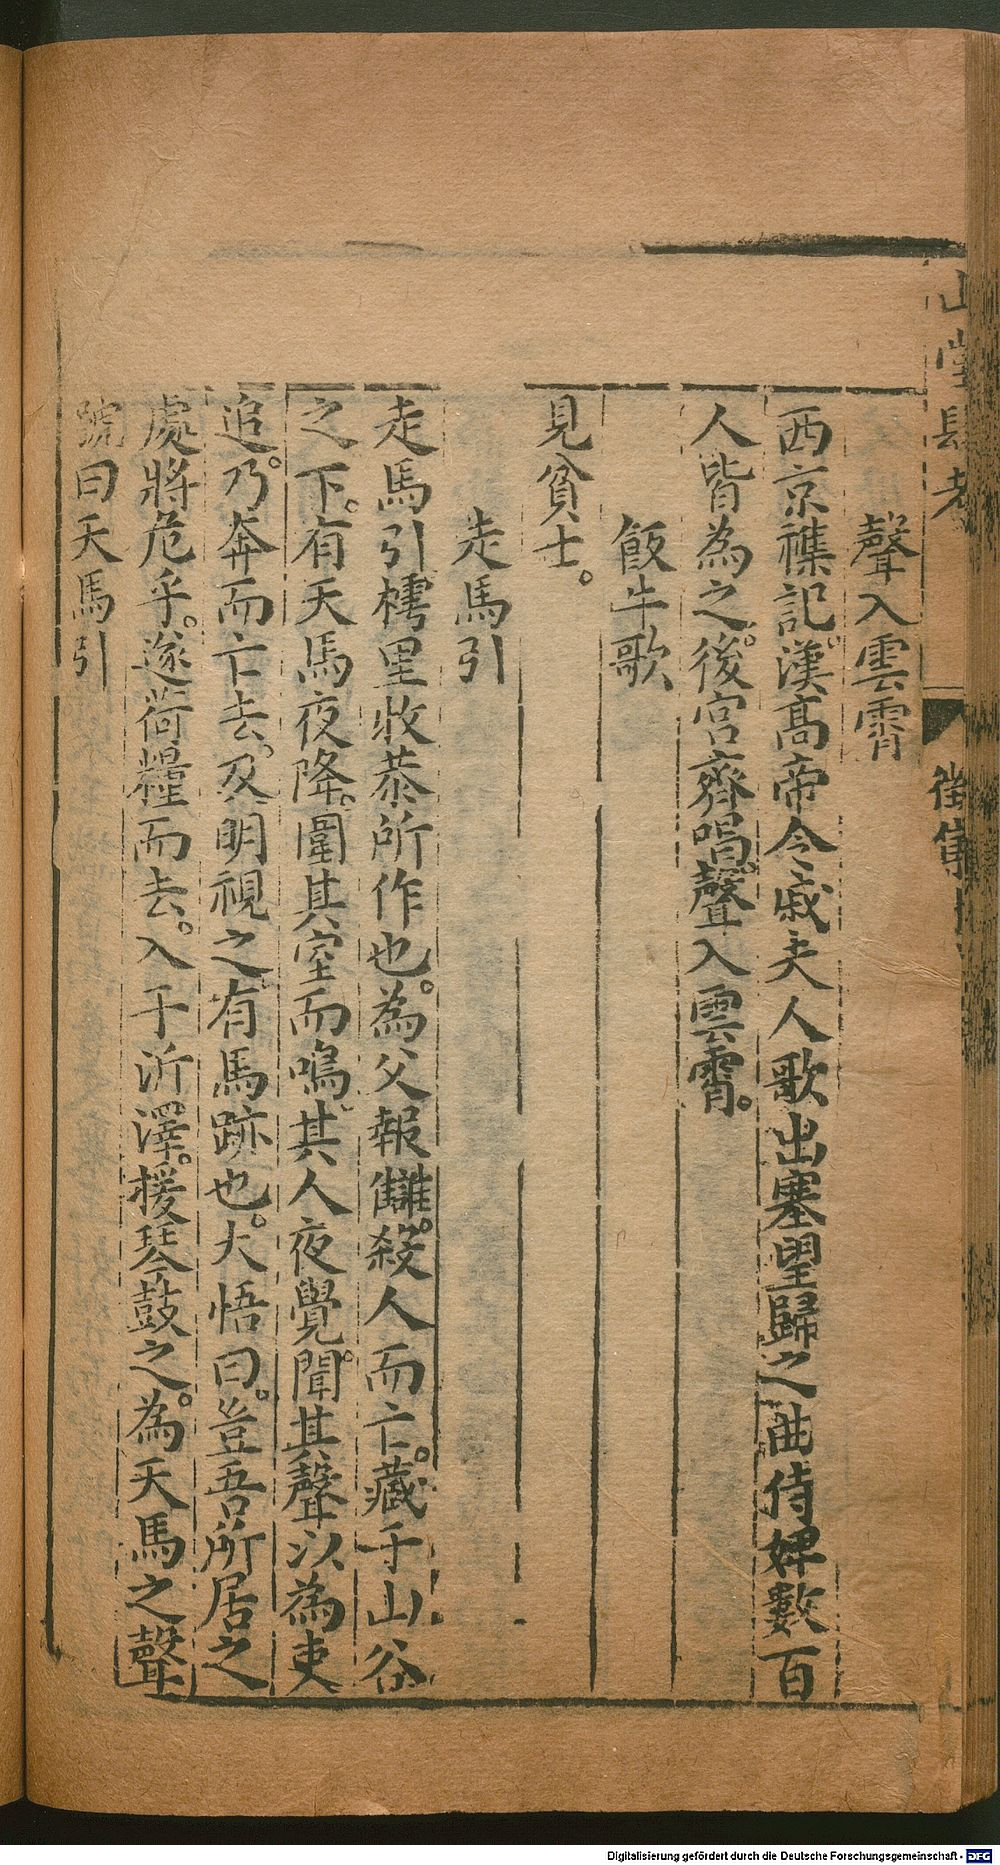 山堂肆考
徵集
聲入雲霄
西京襍記漢高帝令戚夫人歌出塞望歸之曲侍婢數百
人皆為之。後宮齊唱。聲入雲霄。
飯牛歌
見貧士。
走馬引
走馬引樗里牧恭所作也。為父報讎。殺人而亡。藏于山谷
之下。有天馬夜降。圍其室而鳴。其人夜覺。聞其聲以為吏
追。乃奔而亡去。及明視之。有馬跡也。大悟曰。豈吾所居之
處將危乎。遂荷糧而去。入于沂澤。援琴鼓之。為天馬之聲
號曰天馬引
Digitalisierung gefördert durch die Deutsche Forschungsgemeinschaft - DFG